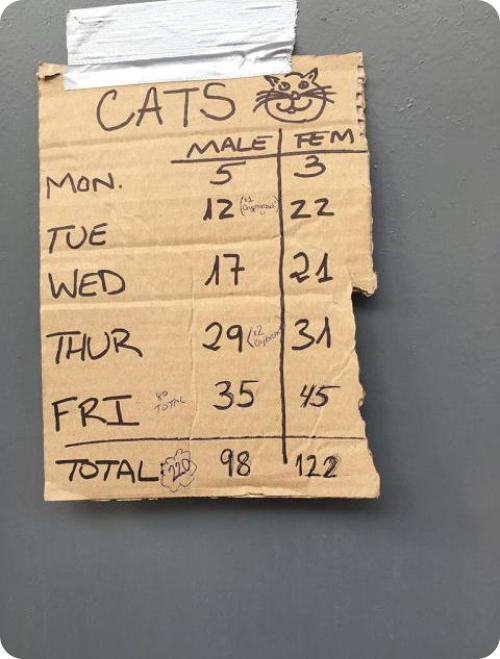 CATS
MALE FEM
MON. 5 3
TUE 12 (x1 cryptorchid) 22
WED 17 21
THUR 29 (x2 31
FRI 80 TOTAL 35 45
TOTAL 220 98 122